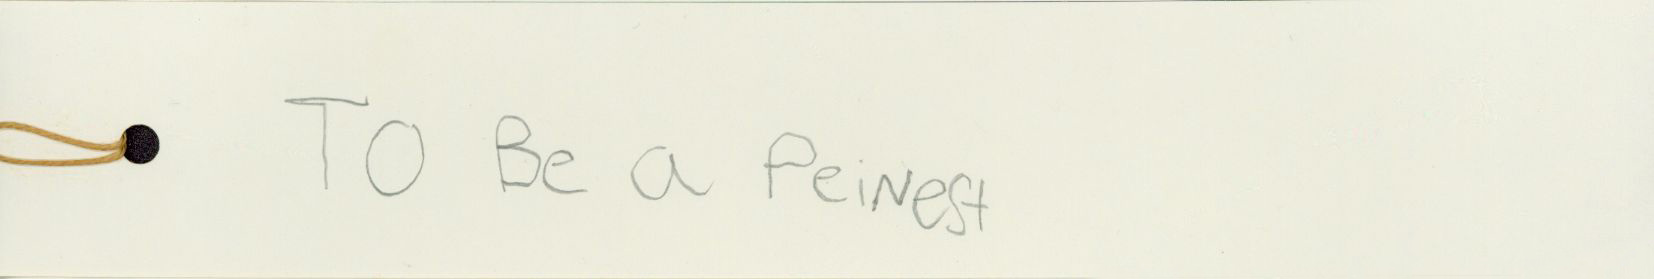 TO Be a PeiNest